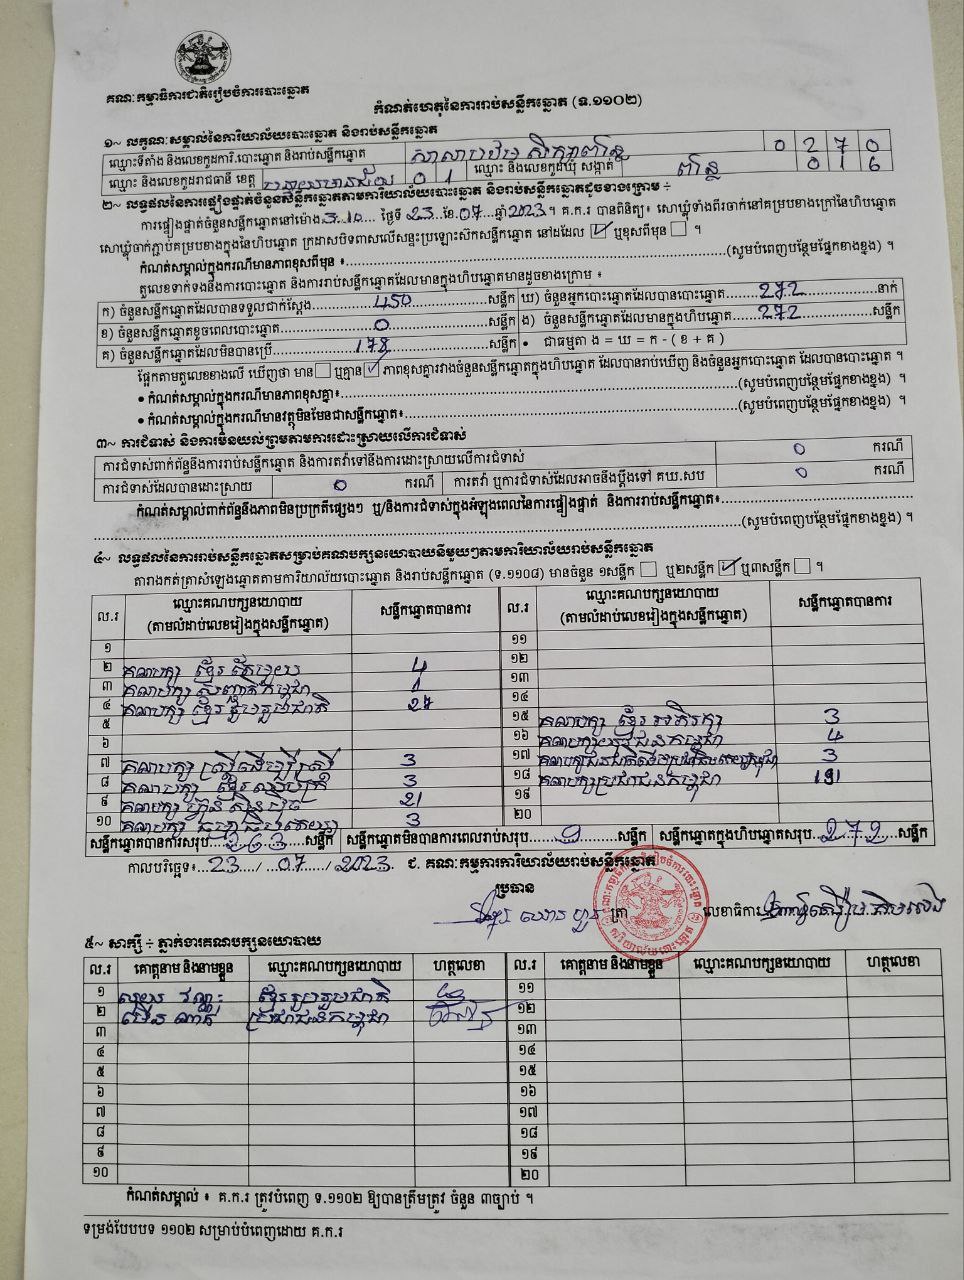 គណៈកម្មាធិការជាតិរៀបចំការបោះឆ្នោត
កំណត់ហេតុនៃការរាប់សន្លឹកឆ្នោត (ទ.១១០២)
១~ លក្ខណៈសម្គាល់នៃការិយាល័យបោះឆ្នោត និងរាប់សន្លឹកឆ្នោត
ឈ្មោះទីតាំង និងលេខកូដការិ.បោះឆ្នោត និងរាប់សន្លឹកឆ្នោត សាលាបឋមសិក្សា 0 2 7 0
ឈ្មោះ និងលេខកូដរាជធានី ខេត្ត បន្ទាយមានជ័យ 0 1 ឈ្មោះ និងលេខកូដឃុំ សង្កាត់ 0 1 6
២~ លទ្ធផលនៃការផ្ទៀងផ្ទាត់ចំនួនសន្លឹកឆ្នោតតាមការិយាល័យបោះឆ្នោត និងរាប់សន្លឹកឆ្នោតដូចខាងក្រោម ÷
ការផ្ទៀងផ្ទាត់ចំនួនសន្លឹកឆ្នោតនៅម៉ោង 3:10 ថ្ងៃទី 23 ខែ 07 ឆ្នាំ 2023 ។ គ.ក.រ បានពិនិត្យ៖ សោឃ្លុំទាំងពីរចាក់នៅគម្របខាងក្រៅនៃហិបឆ្នោត
សោឃ្លុំចាក់ភ្ជាប់គម្របខាងក្នុងនៃហិបឆ្នោត ក្រដាសបិទពាសលើសន្ទះប្រឡោះស៊កសន្លឹកឆ្នោត នៅដដែល ☑ ឬខុសពីមុន ☐ ។
កំណត់សម្គាល់ក្នុងករណីមានភាពខុសពីមុន ៖ (សូមបំពេញបន្ថែមផ្នែកខាងខ្នង) ។
តួលេខទាក់ទងនឹងការបោះឆ្នោត និងការរាប់សន្លឹកឆ្នោតដែលមានក្នុងហិបឆ្នោតមានដូចខាងក្រោម ៖
ក) ចំនួនសន្លឹកឆ្នោតដែលបានទទួលជាក់ស្តែង 450 សន្លឹក ឃ) ចំនួនអ្នកបោះឆ្នោតដែលបានបោះឆ្នោត 272 នាក់
ខ) ចំនួនសន្លឹកឆ្នោតខូចពេលបោះឆ្នោត 0 សន្លឹក ង) ចំនួនសន្លឹកឆ្នោតដែលមានក្នុងហិបឆ្នោត 272 សន្លឹក
គ) ចំនួនសន្លឹកឆ្នោតដែលមិនបានប្រើ 178 សន្លឹក • ជាធម្មតា ង = ឃ = ក - ( ខ + គ )
ផ្អែកតាមតួលេខខាងលើ ឃើញថា មាន ☐ ឬគ្មាន ☑ ភាពខុសគ្នារវាងចំនួនសន្លឹកឆ្នោតក្នុងហិបឆ្នោត ដែលបានរាប់ឃើញ និងចំនួនអ្នកបោះឆ្នោត ដែលបានបោះឆ្នោត ។
• កំណត់សម្គាល់ក្នុងករណីមានភាពខុសគ្នា៖ (សូមបំពេញបន្ថែមផ្នែកខាងខ្នង) ។
• កំណត់សម្គាល់ក្នុងករណីមានវត្ថុមិនមែនជាសន្លឹកឆ្នោត៖ (សូមបំពេញបន្ថែមផ្នែកខាងខ្នង) ។
៣~ ការជំទាស់ និងការមិនយល់ព្រមតាមការដោះស្រាយលើការជំទាស់
ការជំទាស់ពាក់ព័ន្ធនឹងការរាប់សន្លឹកឆ្នោត និងការតវ៉ាទៅនឹងការដោះស្រាយលើការជំទាស់ 0 ករណី
ការជំទាស់ដែលបានដោះស្រាយ 0 ករណី ការតវ៉ា ឬការជំទាស់ដែលអាចនឹងប្តឹងទៅ គឃ.សប 0 ករណី
កំណត់សម្គាល់ពាក់ព័ន្ធនឹងភាពមិនប្រក្រតីផ្សេងៗ ឬ/និងការជំទាស់ក្នុងអំឡុងពេលនៃការផ្ទៀងផ្ទាត់ និងការរាប់សន្លឹកឆ្នោត៖
(សូមបំពេញបន្ថែមផ្នែកខាងខ្នង) ។
៤~ លទ្ធផលនៃការរាប់សន្លឹកឆ្នោតសម្រាប់គណបក្សនយោបាយនីមួយៗតាមការិយាល័យរាប់សន្លឹកឆ្នោត
តារាងកត់ត្រាសំឡេងឆ្នោតតាមការិយាល័យបោះឆ្នោត និងរាប់សន្លឹកឆ្នោត (ទ.១១០៨) មានចំនួន ១សន្លឹក ☐ ឬ២សន្លឹក ☑ ឬ៣សន្លឹក ☐ ។
ល.រ ឈ្មោះគណបក្សនយោបាយ (តាមលំដាប់លេខរៀងក្នុងសន្លឹកឆ្នោត) សន្លឹកឆ្នោតបានការ ល.រ ឈ្មោះគណបក្សនយោបាយ (តាមលំដាប់លេខរៀងក្នុងសន្លឹកឆ្នោត) សន្លឹកឆ្នោតបានការ
១ ១១
២ គណបក្ស ខ្មែរតែមួយ 4 ១២
៣ គណបក្ស សញ្ជាតិកម្ពុជា 1 ១៣
៤ គណបក្ស ខ្មែររួបរួមជាតិ 27 ១៤
៥ ១៥ គណបក្ស ខ្មែរអភិរក្ស 3
៦ ១៦ គណបក្សយុវជនកម្ពុជា 4
៧ គណបក្ស ស្ត្រីដើម្បីស្ត្រី 3 ១៧ 3
៨ គណបក្ស ខ្មែរឈប់ក្រ 3 ១៨ គណបក្សប្រជាជនកម្ពុជា 191
៩ គណបក្ស ហ្វ៊ុនស៊ិនប៉ិច 21 ១៩
១០ គណបក្ស ធម្មាធិបតេយ្យ 3 ២០
សន្លឹកឆ្នោតបានការសរុប 263 សន្លឹក សន្លឹកឆ្នោតមិនបានការពេលរាប់សរុប 9 សន្លឹក សន្លឹកឆ្នោតក្នុងហិបឆ្នោតសរុប 272 សន្លឹក
កាលបរិច្ឆេទ៖ 23 / 07 / 2023 ជ. គណៈកម្មការការិយាល័យរាប់សន្លឹកឆ្នោត
ប្រធាន
ត្រា លេខាធិការ
៥~ សាក្សី ÷ ភ្នាក់ងារគណបក្សនយោបាយ
ល.រ គោត្តនាម និងនាមខ្លួន ឈ្មោះគណបក្សនយោបាយ ហត្ថលេខា ល.រ គោត្តនាម និងនាមខ្លួន ឈ្មោះគណបក្សនយោបាយ ហត្ថលេខា
១ ខ្មែររួបរួមជាតិ ១១
២ ប្រជាជនកម្ពុជា ១២
៣ ១៣
៤ ១៤
៥ ១៥
៦ ១៦
៧ ១៧
៨ ១៨
៩ ១៩
១០ ២០
កំណត់សម្គាល់ ៖ គ.ក.រ ត្រូវបំពេញ ទ.១១០២ ឱ្យបានត្រឹមត្រូវ ចំនួន ៣ច្បាប់ ។
ទម្រង់បែបបទ ១១០២ សម្រាប់បំពេញដោយ គ.ក.រ